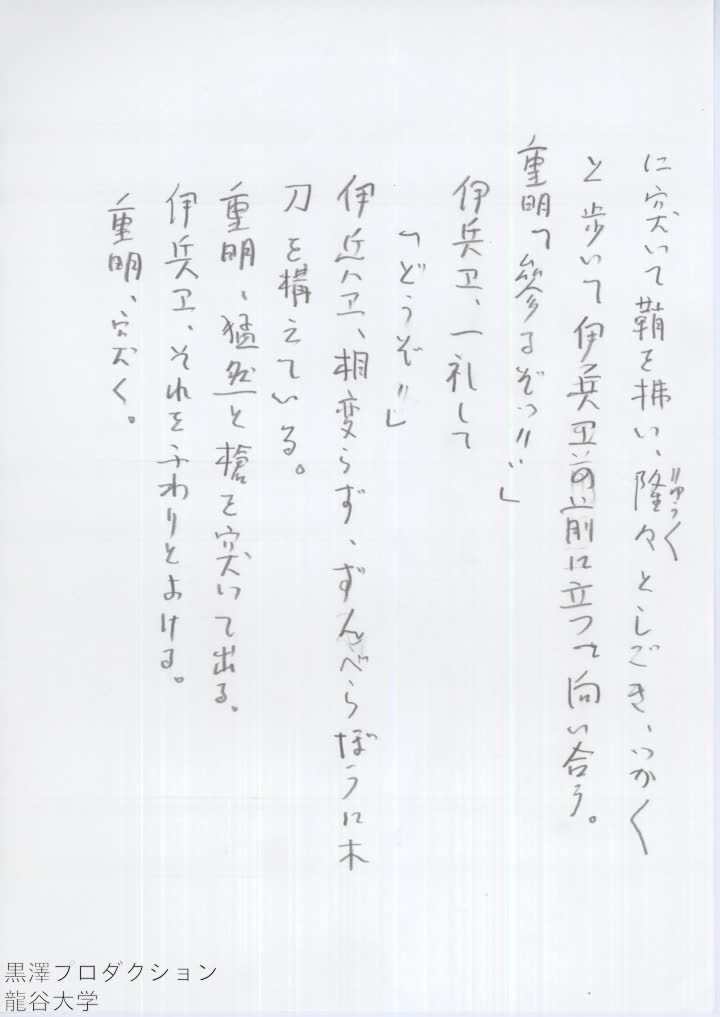 に突いて鞘を拂い、隆々としごき、つかく
りゅうく
と歩いて伊兵卫の前に立って向い合う。
重明「参るぞッ!!」
伊兵卫、一礼して
「どうぞ!!」
伊兵卫、相変らず、ずんべらぼうに木
刀を構えている。
重明、猛然と槍を突いて出る。
伊兵卫、それをふわりとよける。
重明、突く。
黒澤プロダクション
龍谷大学